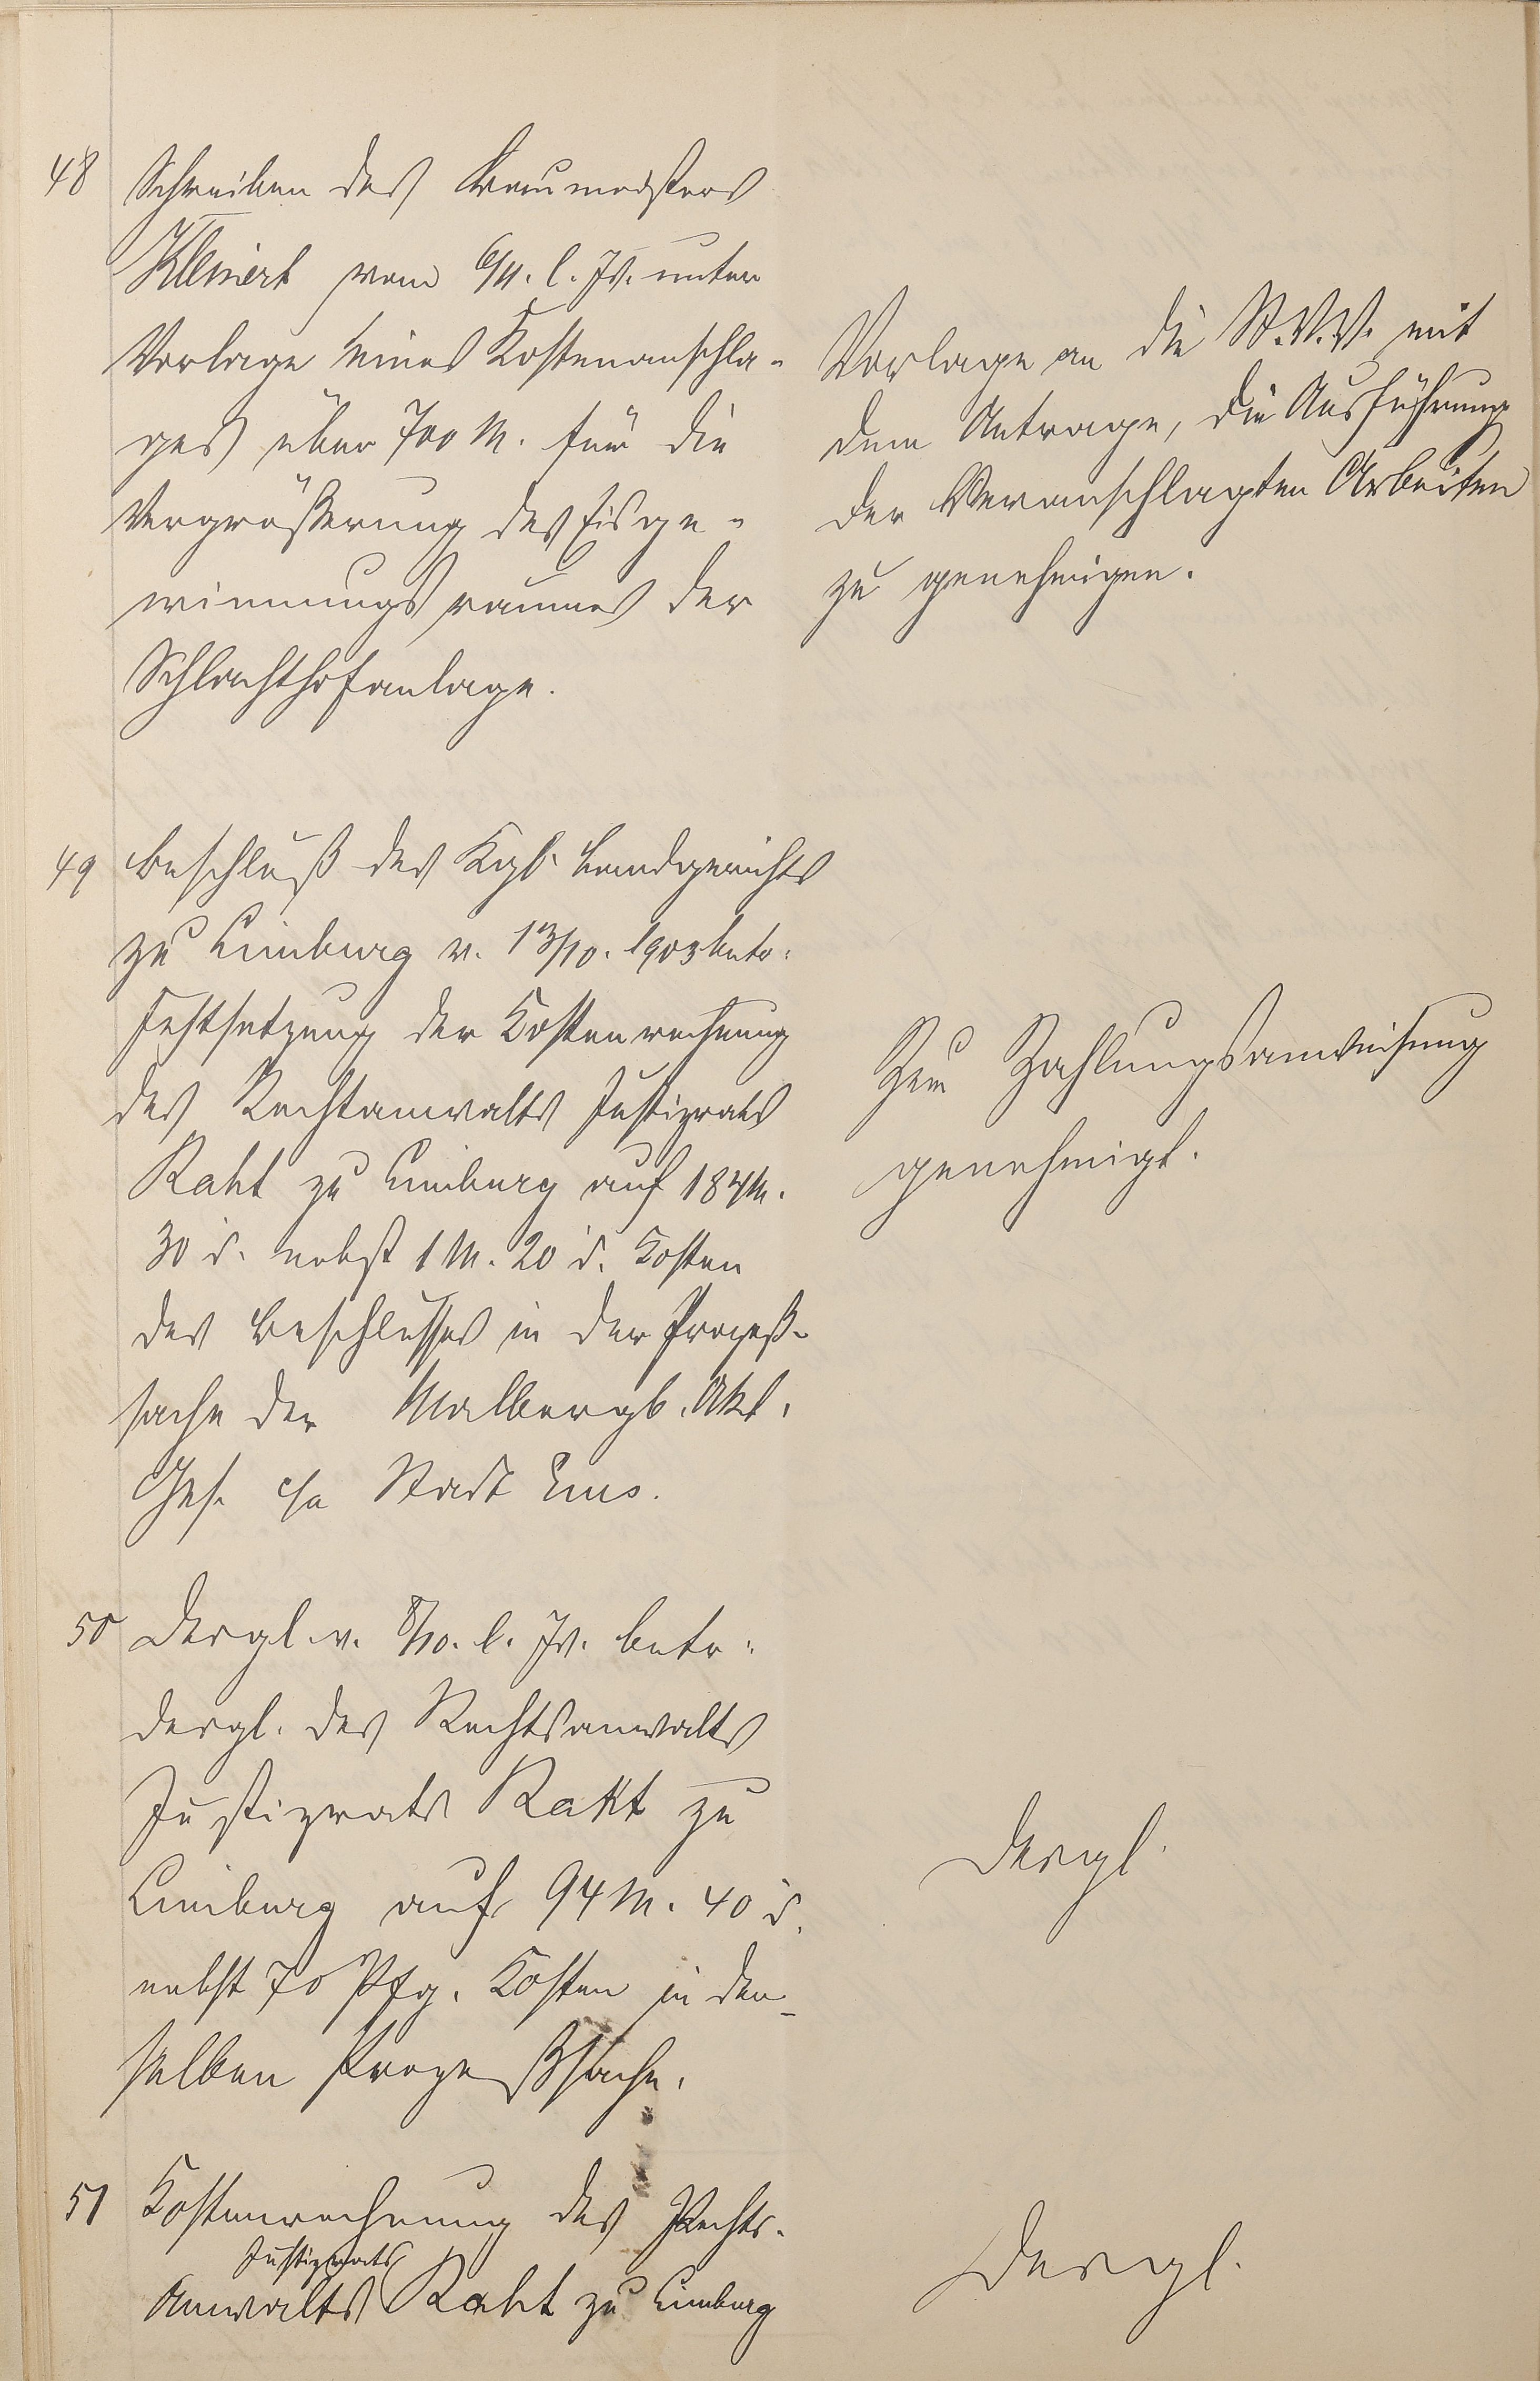 48 Schreiben des Baumeisters
Kleinert vom 6/11. l. Js. unter
Vorlage eines Kostenanschla-
ges über 700 M. für die
Vergrößerung des Eisge-
winnungsraumes der
Schlachthofanlage.
Vorlage an die St.V.V. mit
dem Antrage, die Ausführung
der veranschlagten Arbeiten
zu genehmigen.
49 Beschluß des Kgl. Landgerichts
zu Limburg v. 13/10. 1903 betr.
Festsetzung der Kostenrechnung
des Rechtanwalts Justizrats
Raht zu Limburg auf 184 M.
30 d. nebst 1 M. 20 d. Kosten
des Beschlusses in der Prozeß-
sache der Malbergb. Akt.
Ges. c/a Stadt Ems.
Zur Zahlungsanweisung
genehmigt.
50 Dergl. v. 8/10. l. Js. betr.
dergl. des Rechtsanwalts
Justizrats Raht zu
Limburg auf 94 M. 40 d.
nebst 70 Pfg. Kosten in der-
selben Prozeßsache.
Dergl.
51 Kostenrechnung des Rechts-
Justizrats
anwalts Raht zu Limburg
Dergl.